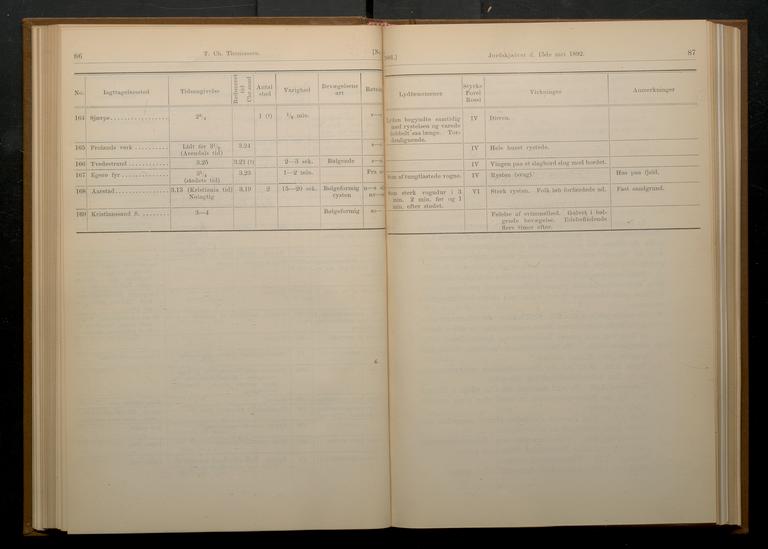 86
T. Ch. Thomassen.
No.
Iagttagelsessted
Tidsangivelse
Reduceret tid Chr.sand
Antal stød
Varighed
Bevægelsens art
164 Sjærpe
1 (?) ¼ min.
165 Frolands verk
Lidt før 3½
(Arendals tid)
3.24
166 Tvedestrand
3.25
3.21 (?)
2—3 sek.
Bølgende
167 Egerø fyr
3¼
(stedets tid)
3.23
1—2 min.
Fra
168 Aarstad
3.13 (Kristiania tid)
Nøiagtig
3.19
2
15—20 sek.
Bølgeformig
rysten
169 Kristianssund S.
3—4
Bølgeformig
Jordskjælvet d. 15de mai 1892.
87
Lydfænomener
Styrke Forel Rossi
Virkninger
Anmerkninger
Lyden begyndte samtidig
med rystelsen og varede
dobbelt saa længe. Tor-
denlignende.
IV
Diren.
IV
Hele huset rystede.
IV
Vingen paa et slagbord slog mod bordet.
Som af tungtlastede vogne.
IV
Rysten (svag).
Hus paa fjeld.
Som sterk vogndur i 3
min. 2 min. før og 1
min. efter stødet.
VI
Sterk rysten. Folk løb forfærdede ud.
Fast sandgrund.
Følelse af svimmelhed. Gulvet i bøl-
gende bevægelse. Ildebefindende
flere timer efter.